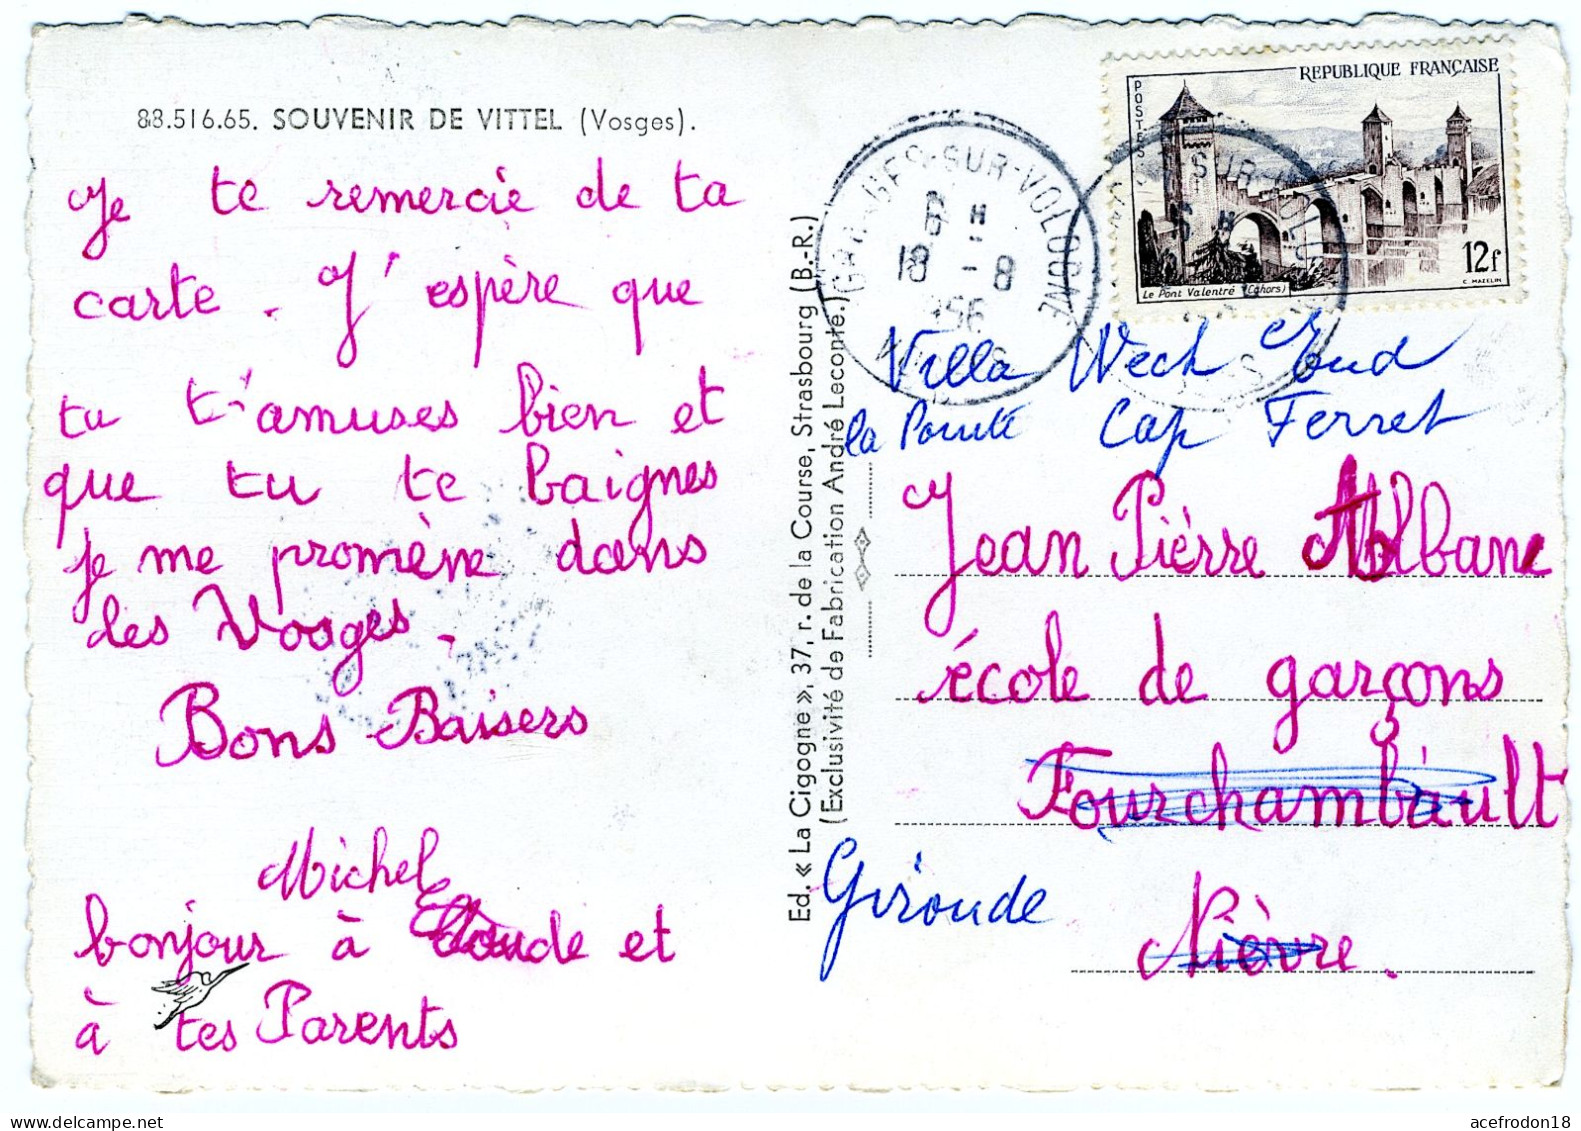 88.516.65. SOUVENIR DE VITTEL (Vosges).
Je te remercie de ta
carte. J'espère que
tu t'amuses bien et
que tu te baignes
je me promène dans
les Vosges.
Bons Baisers
Michel
bonjour à Claude et
à tes Parents
Ed. « La Cigogne », 37, r. de la Course, Strasbourg (B.-R.)
(Exclusivité de Fabrication André Leconte.)
REPUBLIQUE FRANÇAISE
POSTES
12f
Le Pont Valentré (Cahors)
C. MAZELIN
GES-SUR-VOLOGNE
6 H
18 - 8
1956
VOSGES
Villa
la Pointe Cap Ferret
Jean Pièrre Albane
école de garçons
Fourchambault
Gironde
Nièvre.
acefrodon18